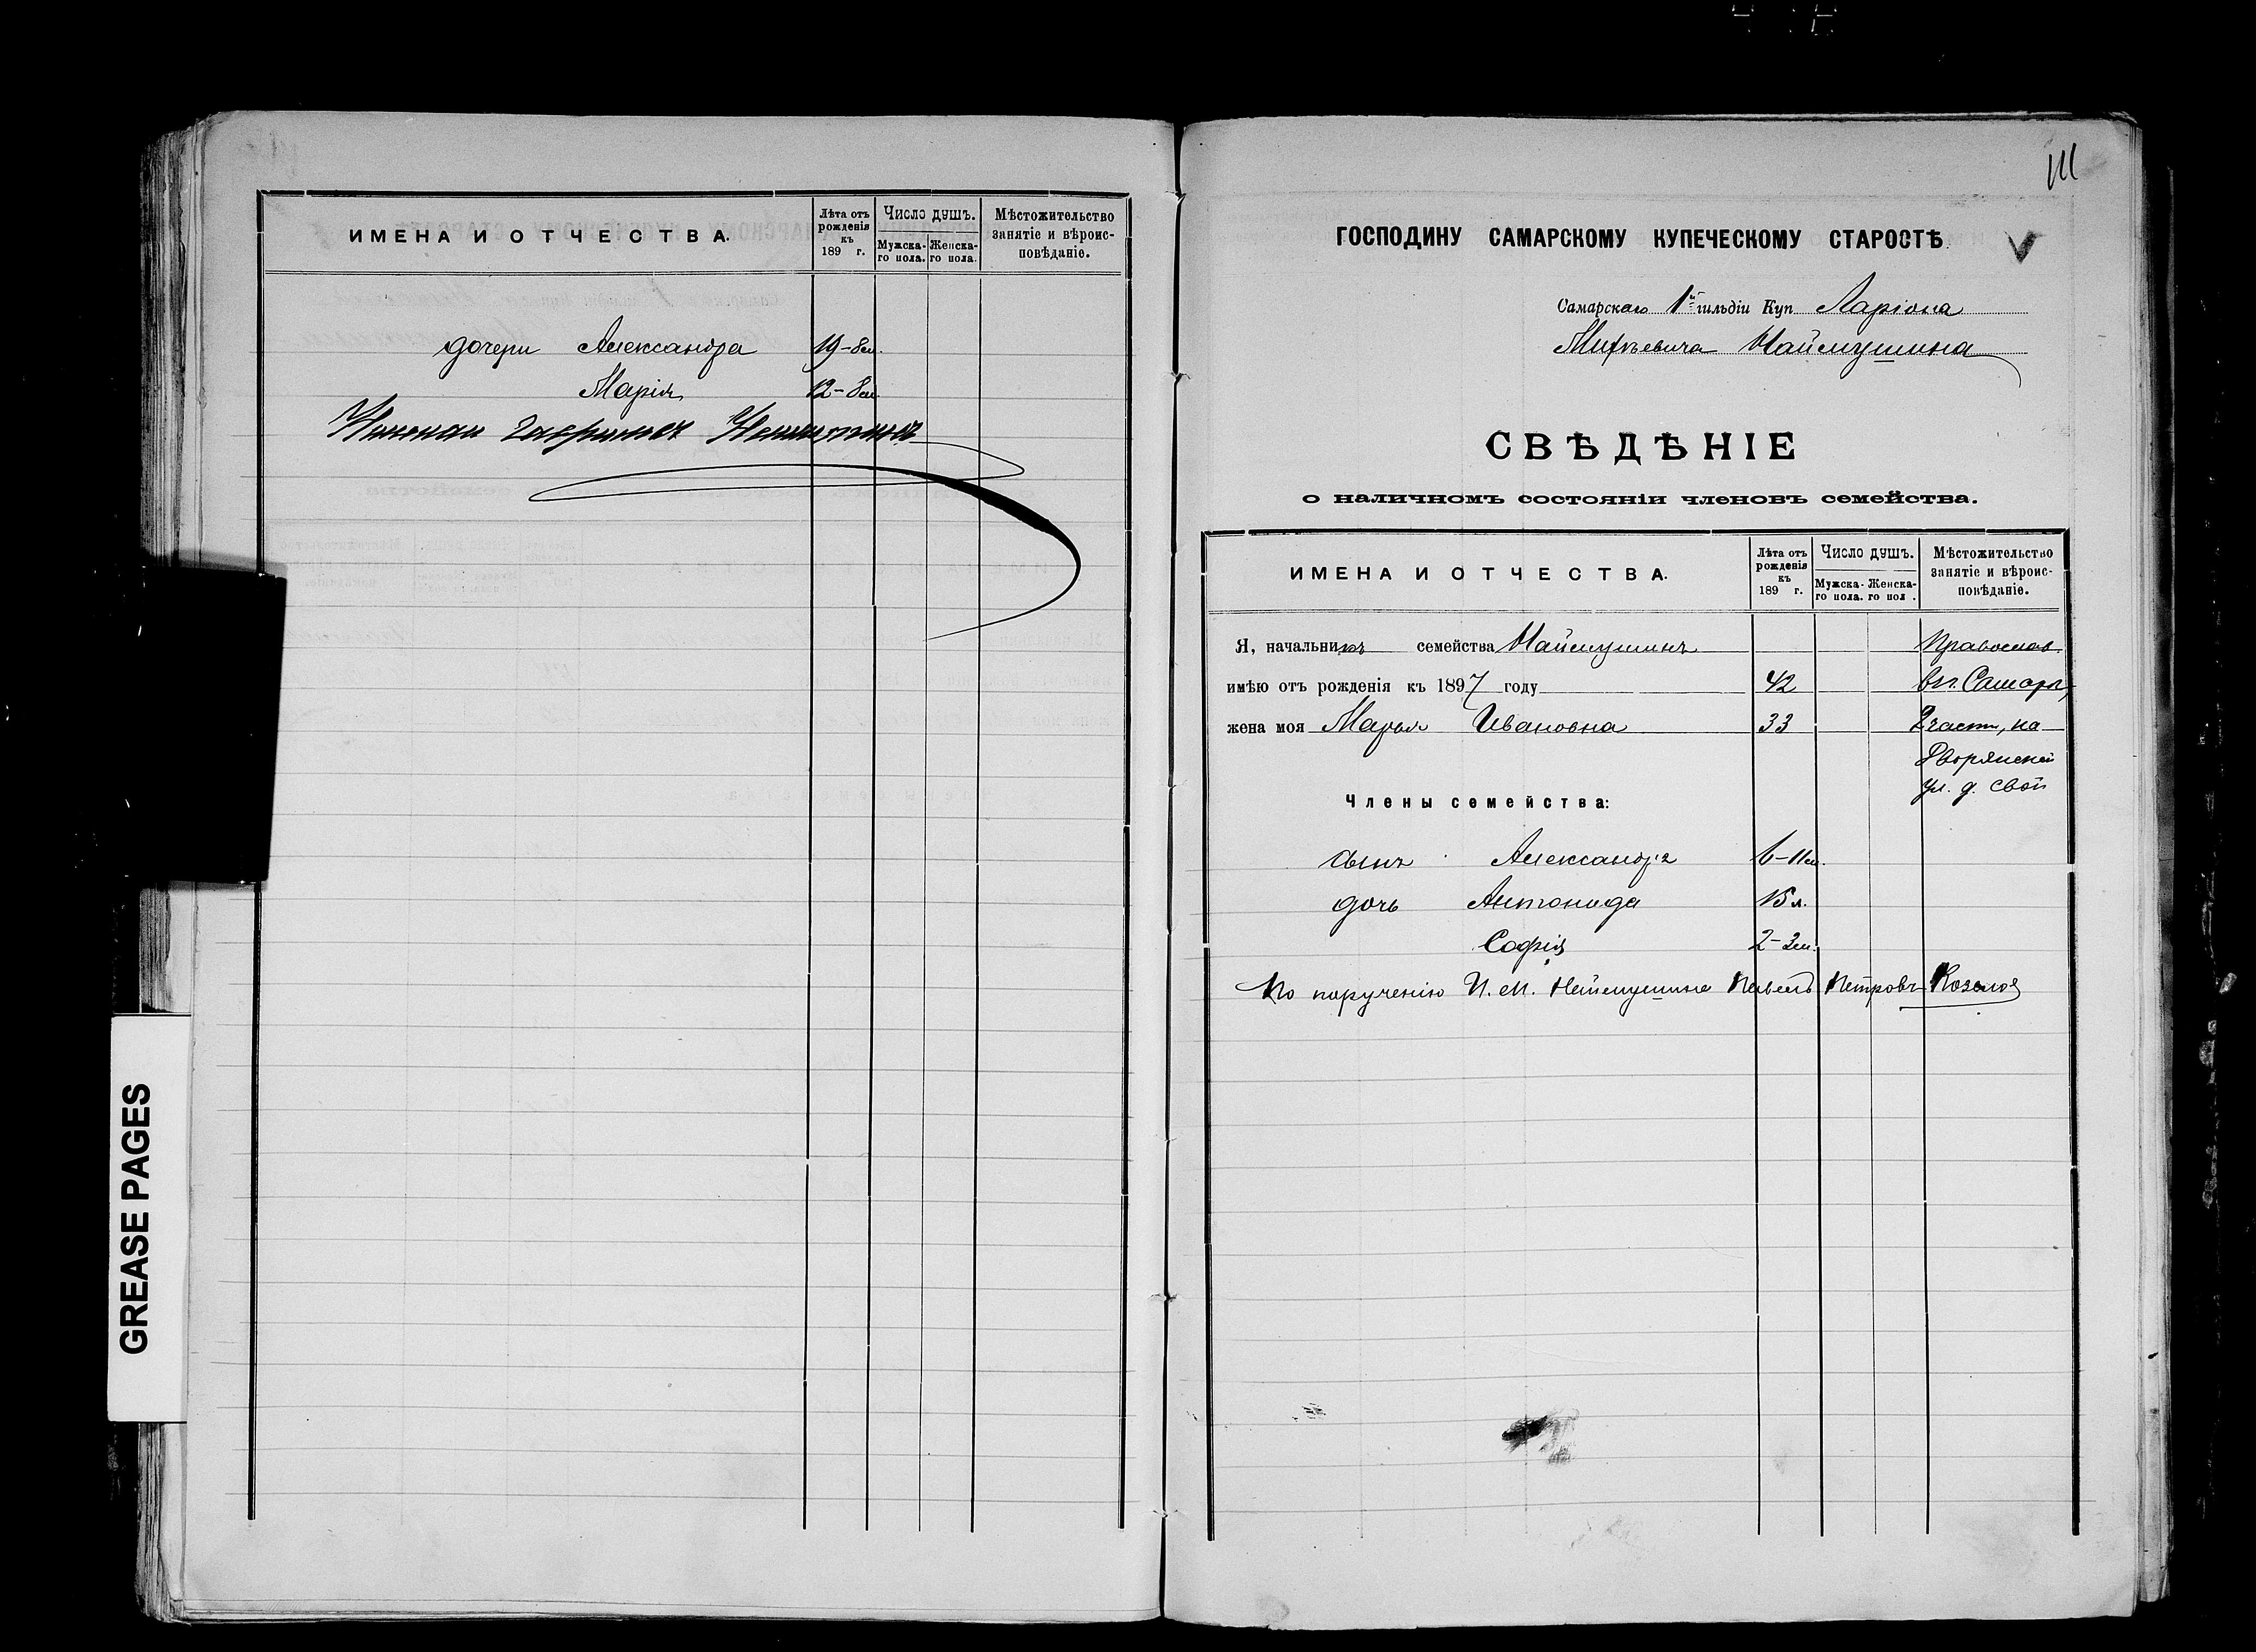 ИМЕНА И ОТЧЕСТВА.
Лѣта отъ рожденія къ 189 г.
Число душъ.
Мужска-го пола.
Женска-го пола.
Мѣстожительство занятіе и вѣроис-повѣданіе.
дочери Александра 19-8м.
Марія 12-8м.
GREASE PAGES
111
ГОСПОДИНУ САМАРСКОМУ КУПЕЧЕСКОМУ СТАРОСТѢ
Самарскаго 1й гильдіи Куп Ларіона
Михѣевича Наймушина
СВѢДѢНІЕ
о наличномъ состояніи членовъ семейства.
ИМЕНА И ОТЧЕСТВА.
Лѣта отъ рожденія къ 189 г.
Число душъ.
Мужска-го пола.
Женска-го пол .
Мѣстожительство занятіе и вѣроис-повѣданіе.
Я, начальникъ семейства Наймушинъ Православ.
имѣю отъ рожденія къ 1897 году 42 въ г. Самарѣ,
жена моя Марья Ивановна 33 2 части, на
Дворянской
ул. д. свой
Члены семейства:
сынъ Александръ 6-11м.
дочь Антонида 15 л.
Софія 2-3м.
По порученію И. М. Наймушина Павелъ Петровъ Козлов